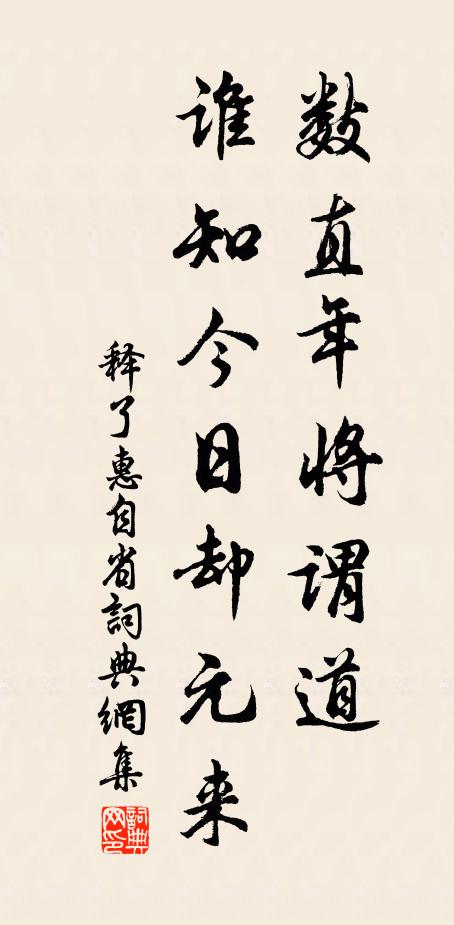 数直年将谓道
谁知今日却元来
释了惠自省詞典網集
詞典網印